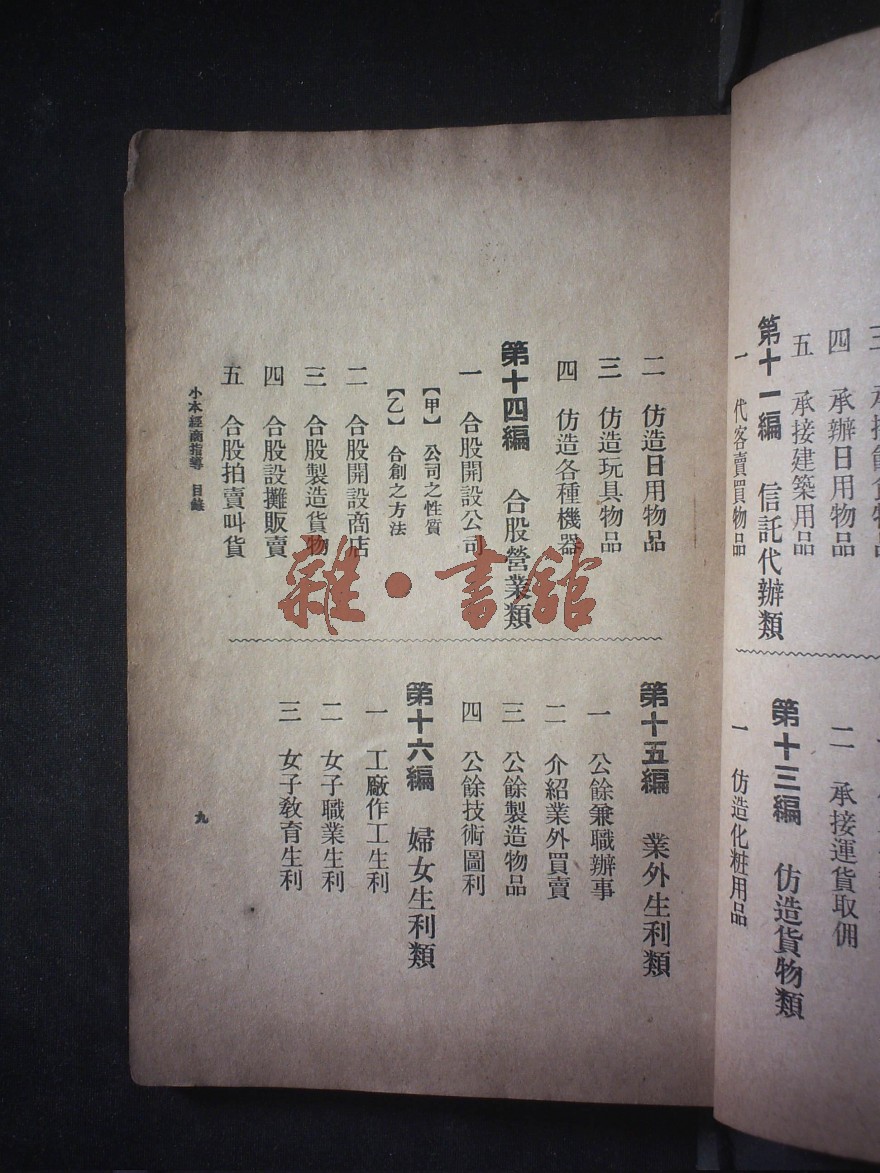 承辦日用物品
四 承辦日用物品
五 承接建築用品
第十一編 信託代辦類
一 代客賣買物品
二 承接運貨取佣
第十三編 仿造貨物類
一 仿造化粧用品
二 仿造日用物品
三 仿造玩具物品
四 仿造各種機器
第十四編 合股營業類
一 合股開設公司
【甲】 公司之性質
【乙】 合創之方法
二 合股開設商店
三 合股製造貨物
四 合股設攤販賣
五 合股拍賣叫貨
第十五編 業外生利類
一 公餘兼職辦事
二 介紹業外買賣
三 公餘製造物品
四 公餘技術圖利
第十六編 婦女生利類
一 工廠作工生利
二 女子職業生利
三 女子教育生利
小本經商指導 目錄
九
雜·書館